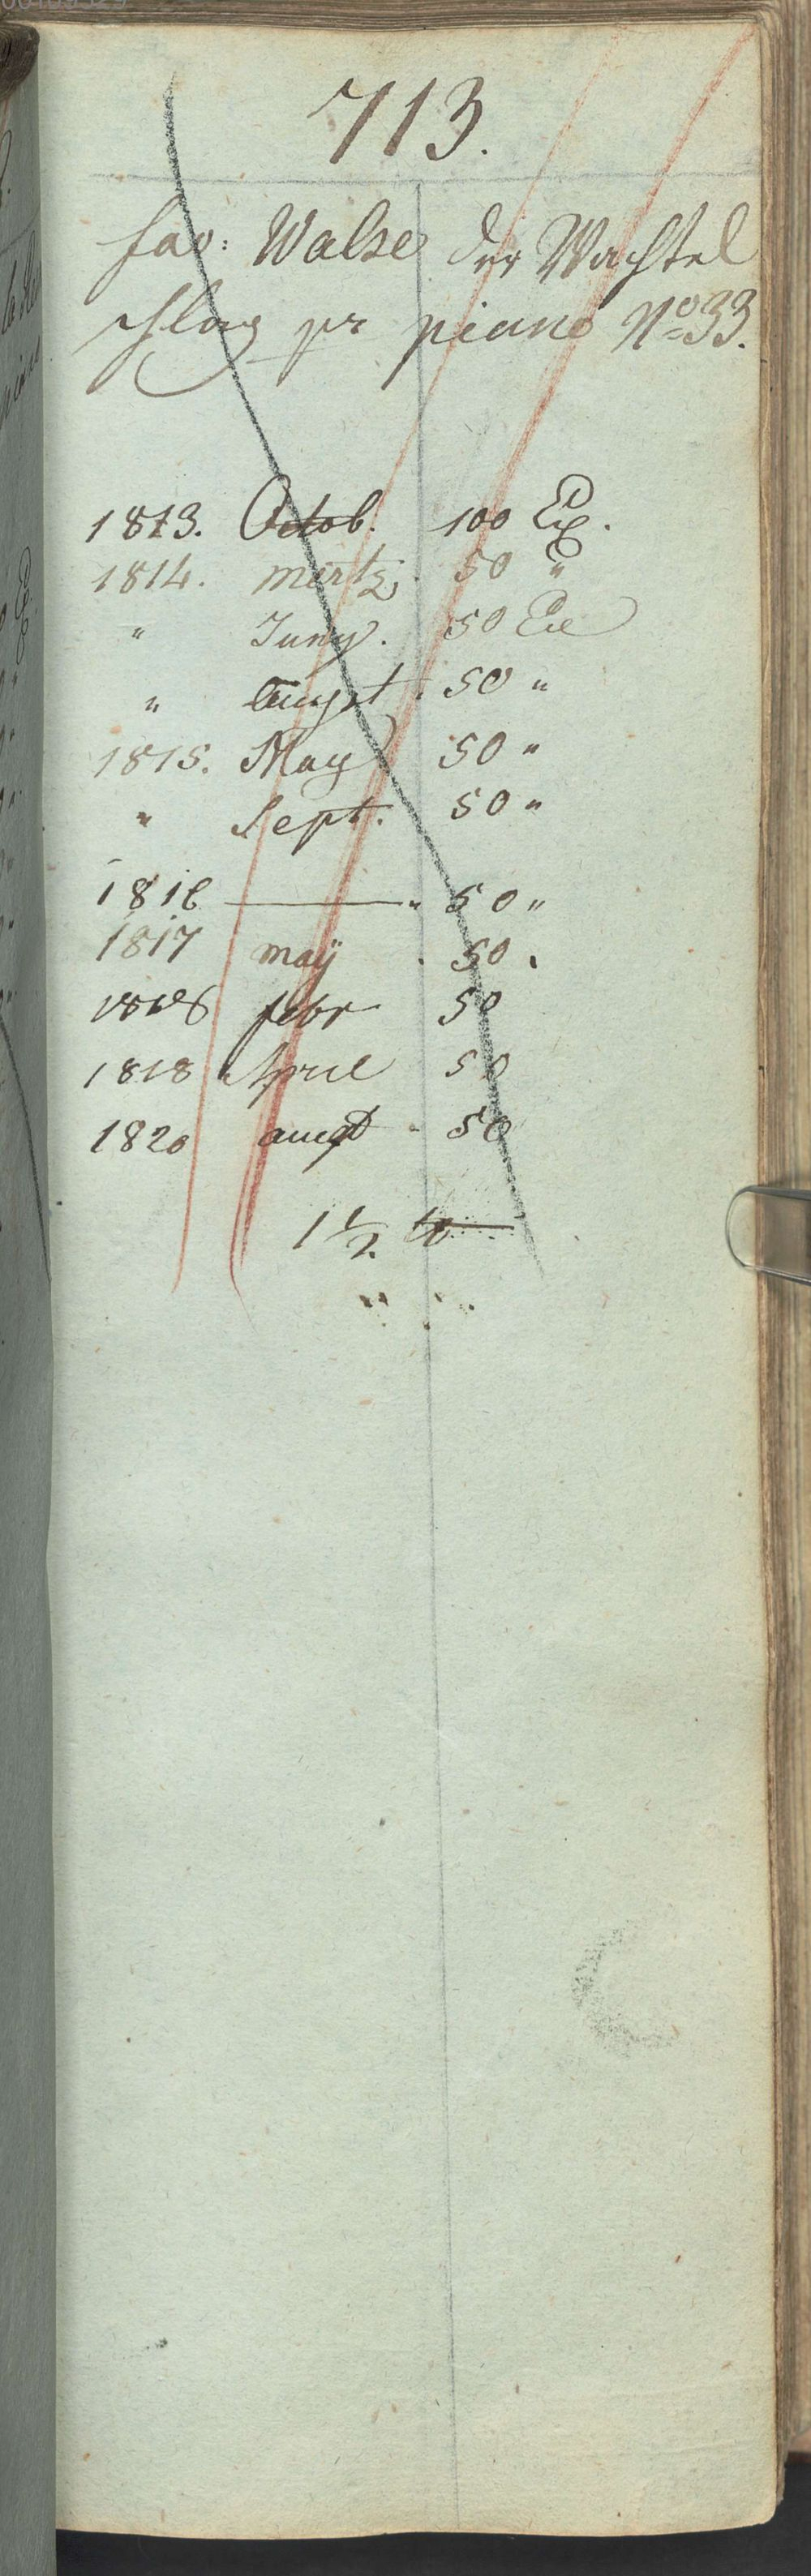 713.
fav: Walse der Wachtel
schlag pr piano No 33.
1813. Octob. 100 Ex.
1814. Mertz. 50 "
" Juny. 50 Ex
" August. 50 "
1815. May 50 "
" Sept. 50 "
1816 — " 50 "
1817 maÿ . 50 .
febr 50
1818 April 50
1820 augst . 50
1 1/2